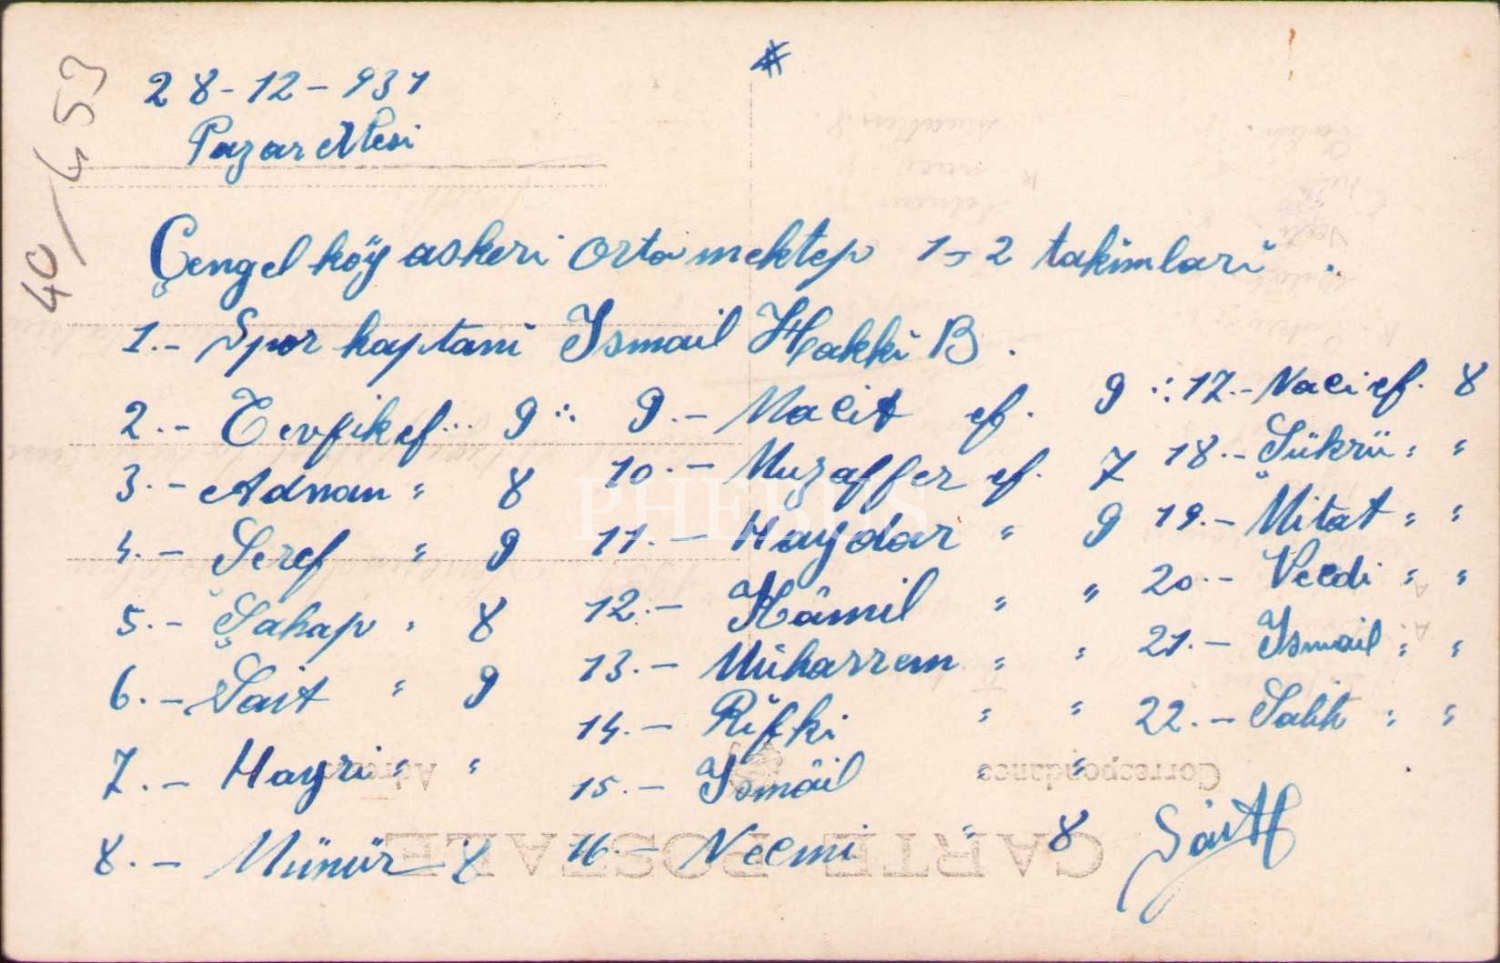 40/453
28-12-931
Pazar ertesi
Çengel köy askeri orta mektep 1-2 takimlari.
1.- Spor kaptani Ismail Hakki B.
2.- Tevfik ef. 9
3.- Adnan " 8
4.- Şeref " 9
5.- Şahap " 8
6.- Sait " 9
7.- Hayri " "
8.- Münür 8
9.- Macit ef. 9
10.- Muzaffer ef. 7
11.- Haydar " 9
12.- Kâmil " "
13.- Müharrem " "
14.- Rifki " "
15.- Ismâil " "
16.- Necmi " 8
17.- Naci ef. 8
18.- Şükrü " "
19.- Mitat " "
20.- Vecdi " "
21.- Ismail " "
22.- Salih " "
Sait
PHEBUS
Correspondance
Adresse
CARTE POSTALE